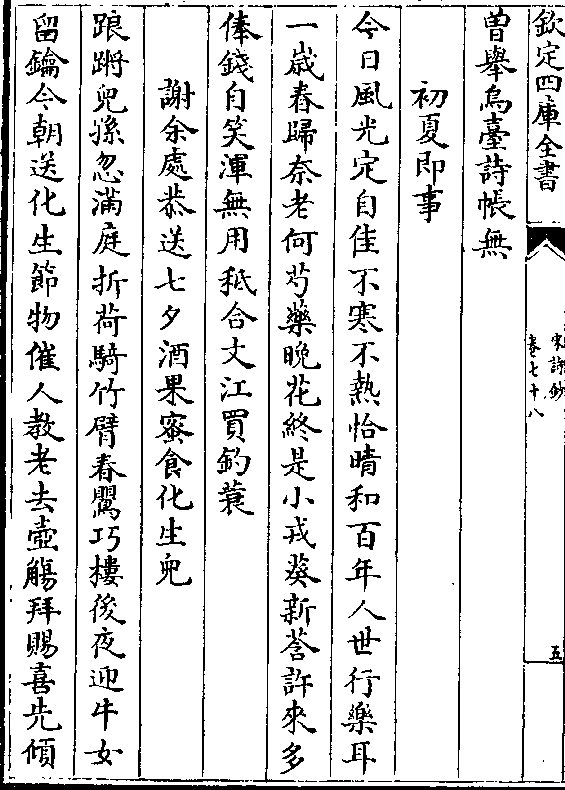 欽定四庫全書
宋詩鈔
卷七十八
五
曽舉烏臺詩帳無
初夏即事
今日風光定自佳不寒不熱恰晴和百年人世行樂耳
一歲春歸奈老何芍藥晚花終是小戎葵新蒼許來多
俸錢自笑渾無用秪合文江買釣蓑
謝余處恭送七夕酒果蜜食化生兒
踉蹡兒孫忽滿庭折荷騎竹臂春鶯巧樓後夜迎牛女
留鑰今朝送化生節物催人教老去壺觴拜賜喜先傾